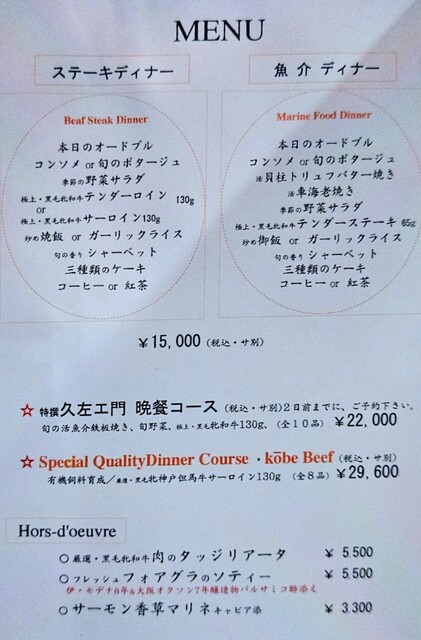 MENU
ステーキディナー
魚介 ディナー
Beaf Steak Dinner
本日のオードブル
コンソメ or 旬のポタージュ
季節の野菜サラダ
極上・黒毛牝和牛テンダーロイン
or
130g
極上・黒毛牝和牛サーロイン130g
炒め焼飯 or ガーリックライス
旬の香り シャーベット
三種類のケーキ
コーヒー or 紅茶
Marine Food Dinner
本日のオードブル
コンソメ or 旬のポタージュ
活貝柱トリュフバター焼き
活車海老焼き
季節の野菜サラダ
極上・黒毛牝和牛テンダーステーキ 65g
炒め御飯 or ガーリックライス
旬の香り シャーベット
三種類のケーキ
コーヒー or 紅茶
¥15,000 (税込・サ別)
☆ 特撰久左エ門 晩餐コース (税込・サ別)2日前までに、ご予約下さい。
旬の活魚介鉄板焼き、旬野菜、極上・黒毛牝和牛130g、(全10品) ¥22,000
☆ Special QualityDinner Course ・kōbe Beef (税込・サ別)
有機飼料育成/厳選・黒毛牝神戸但馬牛サーロイン130g (全8品) ¥29,600
Hors-d'oeuvre
○ 厳選・黒毛牝和牛肉のタッジリアータ ¥ 5.500
○ フレッシュフォアグラのソティー ¥ 5.500
伊・モデナ8年&大阪オクソン7年醸造物バルサミコ酢添え
○ サーモン香草マリネキャビア添 ¥ 3.300